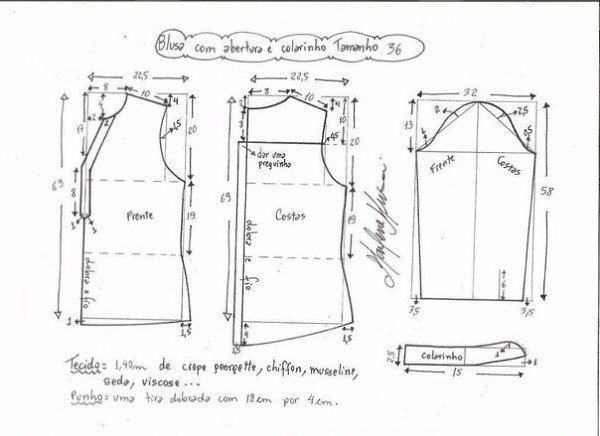 Blusa com abertura e colarinho Tamanho 36
22,5
8
10
4
4
2
2
17
69
8
1
1
1,5
20
19
Frente
dobra e fio
1
1,5
22,5
8
10
4
2
8
10
0,5
20
dar uma
preguinha
69
Costas
19
dobra e fio
4
1,5
1,5
32
13
2
2,5
1
0,5
Frente
Costas
58
6
3,5
3,5
2,5
colarinho
1
1
15
Tecido = 1,40m de crepe georgette, chiffon, musseline,
seda, viscose ...
Punho = uma tira dobrada com 18cm por 4cm.